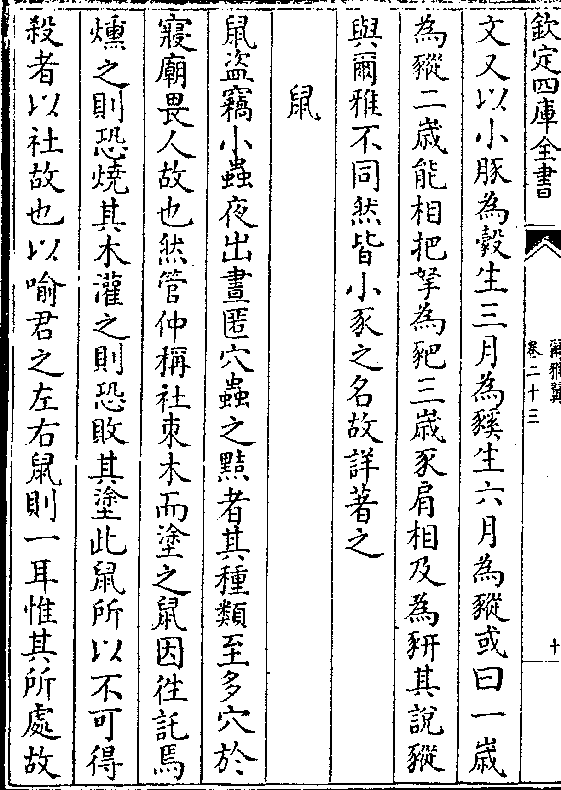 欽定四庫全書
爾雅翼
卷二十三
十
文又以小豚為豰生三月為豯生六月為豵或曰一歲
為豵二歲能相把拏為豝三歲豕肩相及為豜其說豵
與爾雅不同然皆小豕之名故詳著之
鼠
鼠盜竊小蟲夜出晝匿穴蟲之黠者其種類至多穴於
寢廟畏人故也然管仲稱社束木而塗之鼠因徃託焉
燻之則恐燒其木灌之則恐敗其塗此鼠所以不可得
殺者以社故也以喻君之左右鼠則一耳惟其所處故